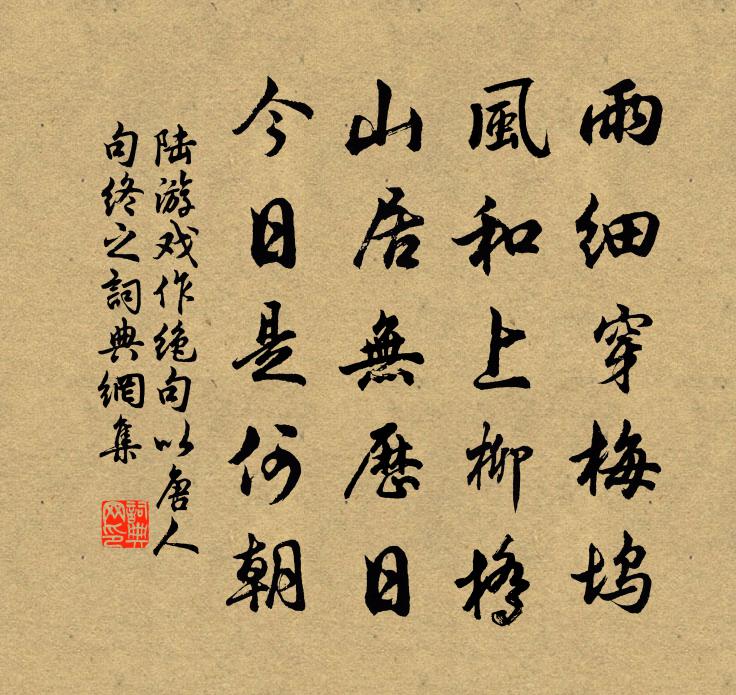 雨細穿梅坞
風和上柳橋
山居無曆日
今日是何朝
陆游戏作绝句以唐人
句终之詞典網集
詞典网印